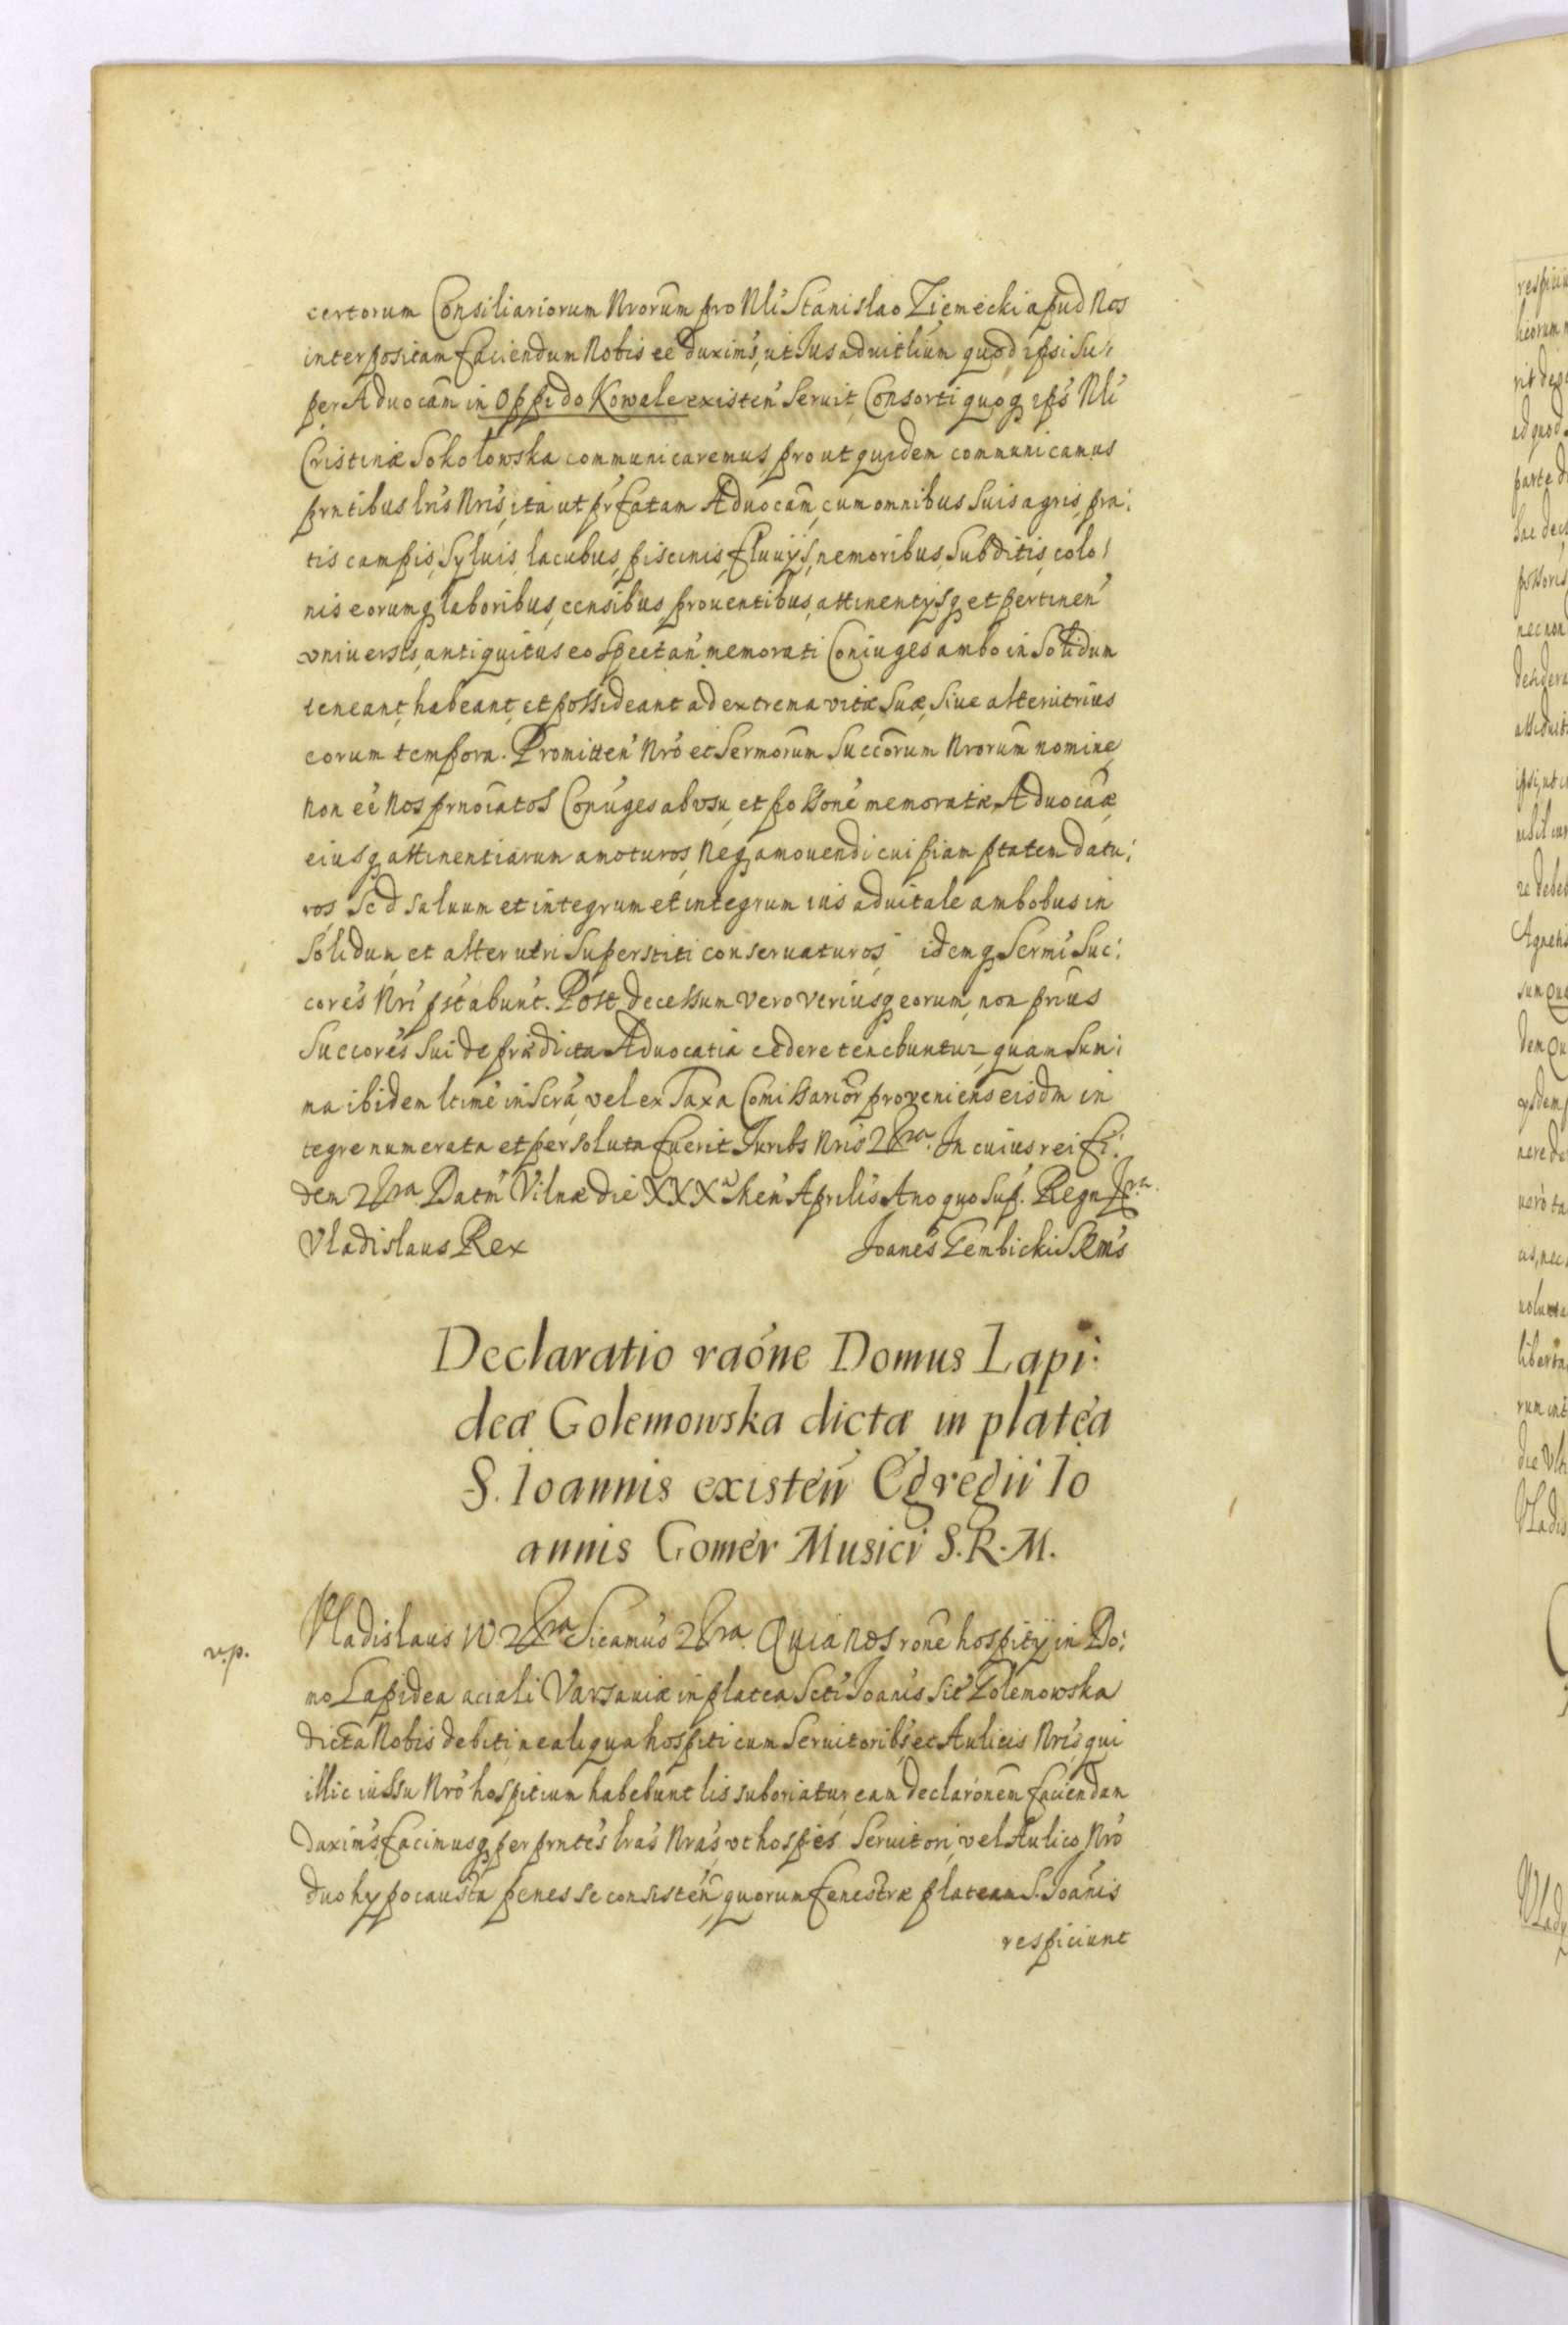 certorum Consiliariorum Nrorum pro Nli Stanislao Ziemecki apud Nos
interpositam faciendum Nobis eē duxim's, ut Jus aduitlium quod ipsi Su-
per Aduocām in Oppido Kowale existen' Seruit, Consorti quoq ips' Nli
Cristinæ Sokołowska communicaremus, prout quidem communicamus
prntibus lris Nris, ita ut prfatam Aduocām, cum omnibus Suis agris, pra:
tis campis, Syluis, lacubus, piscinis, fluuijs, nemoribus, Subditis, colo:
nis eorumq laboribus, censibus, prouentibus, attinentijsq et pertinen'
vniuersis, antiquitus eo spectan' memorati Coniuges ambo in Solidum
teneant, habeant, et possideant ad extrema vitæ Suæ, Siue alterutrius
eorum tempora. Promitten' Nro et Sermorum Succorum Nrorum nomine
non eē Nos prnoiatos Coniuges ab vsu, et possone memoratæ Aduocāæ
eiusq attinentiarum amoturos, Neq amouendi cuipiam ptatem datu:
ros, Sed saluum et integrum et integrum ius aduitale ambobus in
Solidum et alterutri Superstiti conseruaturos, idemq Sermi Suc:
cores Nri pstabunt. Post decessum vero vtriusq eorum, non prius
Succores Sui de prædicta Aduocatia cedere tenebuntur, quam Sum:
ma ibidem ltime inscra, vel ex Taxa Comissarior proueniens eisdm in
tegre numerata et persoluta fuerit Juribs Nris &ra. In cuius rei fi:
dem &ra. Datm Vilnæ die XXX Men' Aprilis Ano quo Sup. Regn &ra.
Vladislaus Rex Joanes Gembicki SRM's
Declaratio raóne Domus Lapi:
deæ Golemowska dictæ in platea
S. Ioannis existen' Egregii Io
annis Gomer Musici S.R.M.
v.p.
Vladislaus IV &ra Sicamus &ra. Quia Nos rone hospitij in Do:
mo Lapidea aciali Varsauiæ in platea Scti Joanis sit' Golemowska
dicta Nobis debiti, ne aliqua hospiti cum Seruitoribs et Aulicis Nris qui
illic iussu Nro hospitium habebunt lis suboriatur, eam declaronem faciendam
duxim's, facimusq per prntes lras Nras, vt hospes Seruitori, vel Aulico Nro
duo hypocausta penes se consisten quorum fenestræ plateam S. Joanis
respiciunt